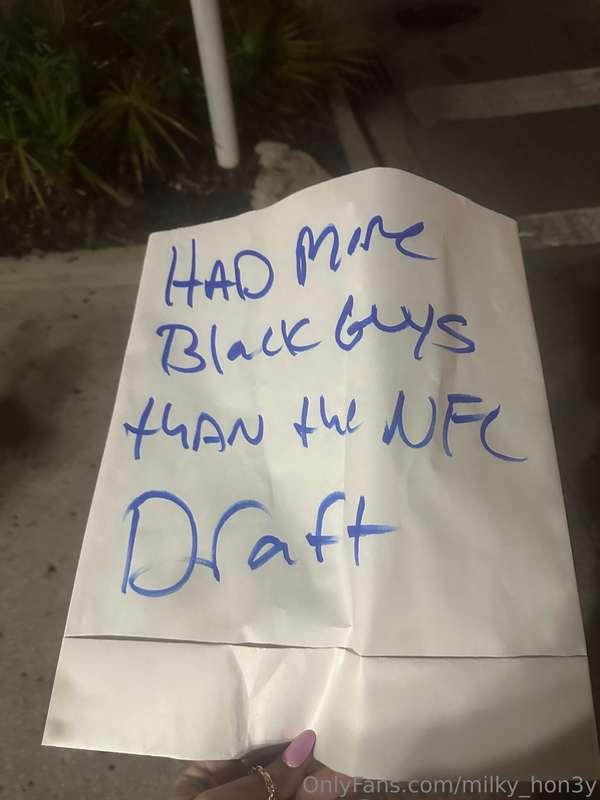 HAD MORE
Black Guys
than the NFL
Draft
OnlyFans.com/milky_hon3y